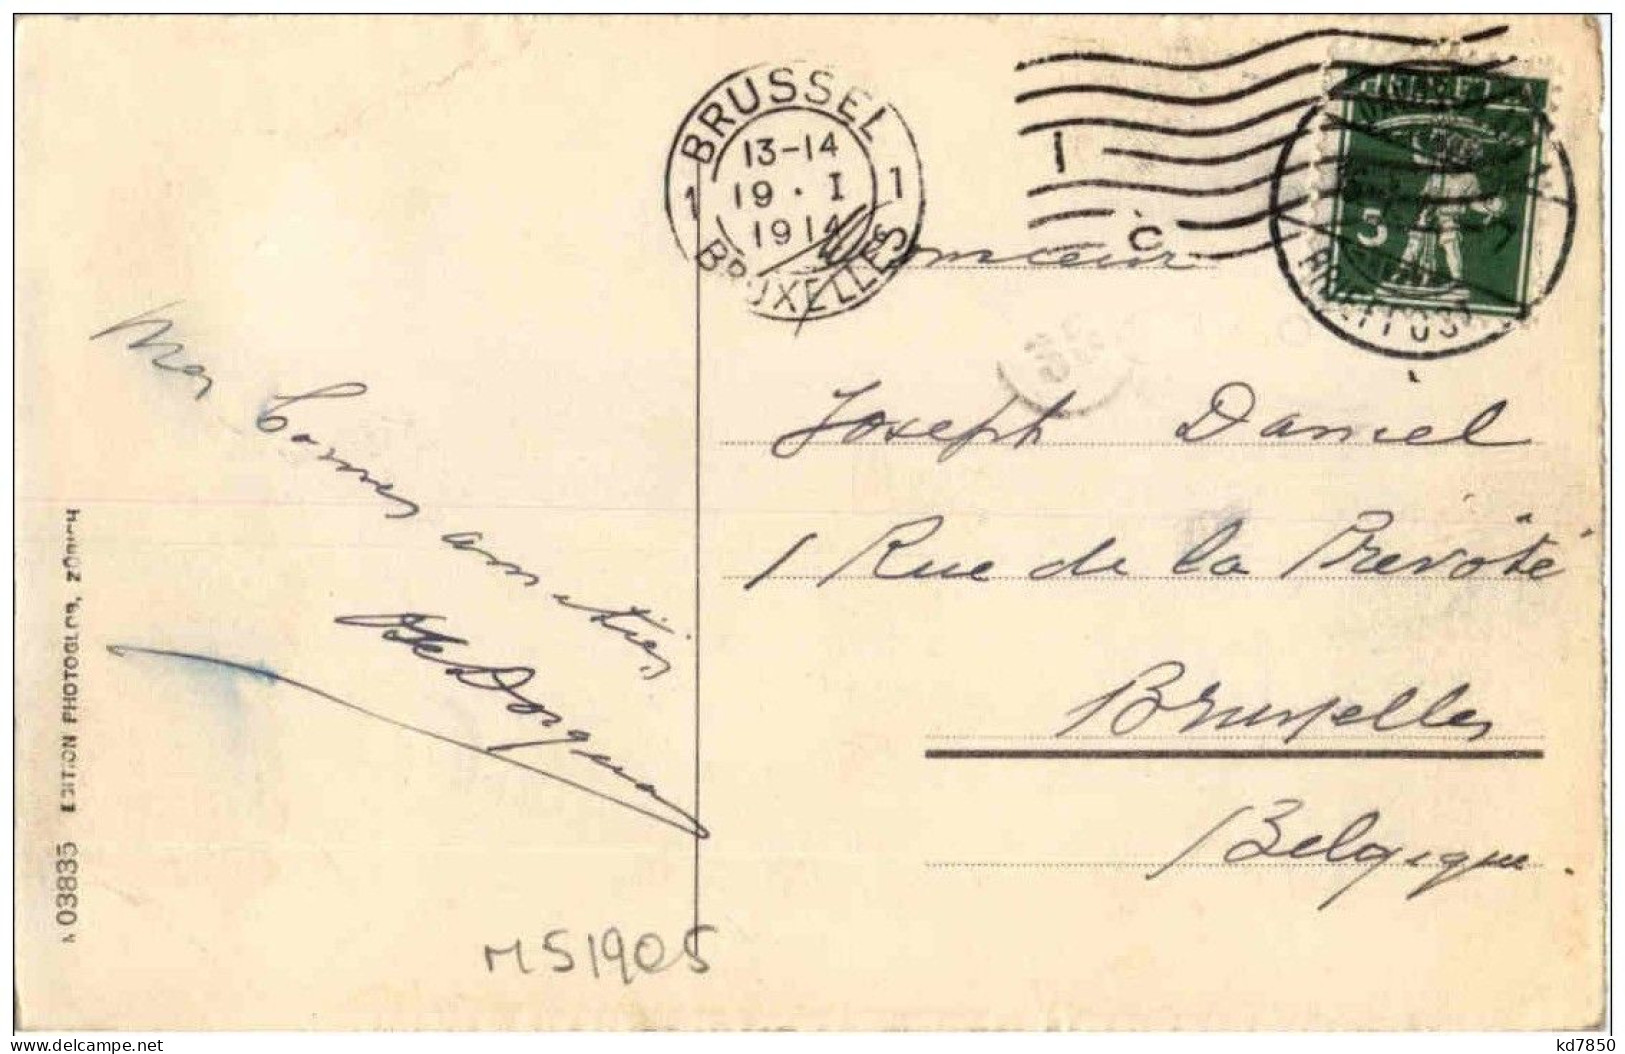 BRUSSEL
13-14
1 19 · I 1
1914
BRUXELLES
HELVETIA
5
Monsieur
Joseph Daniel
1 Rue de la Prévoté
Bruxelles
Belgique.
Mes bonnes amitiés
03835 EDITION PHOTOGLOB, ZÜRICH
MS1905
www.delcampe.net
kd7850